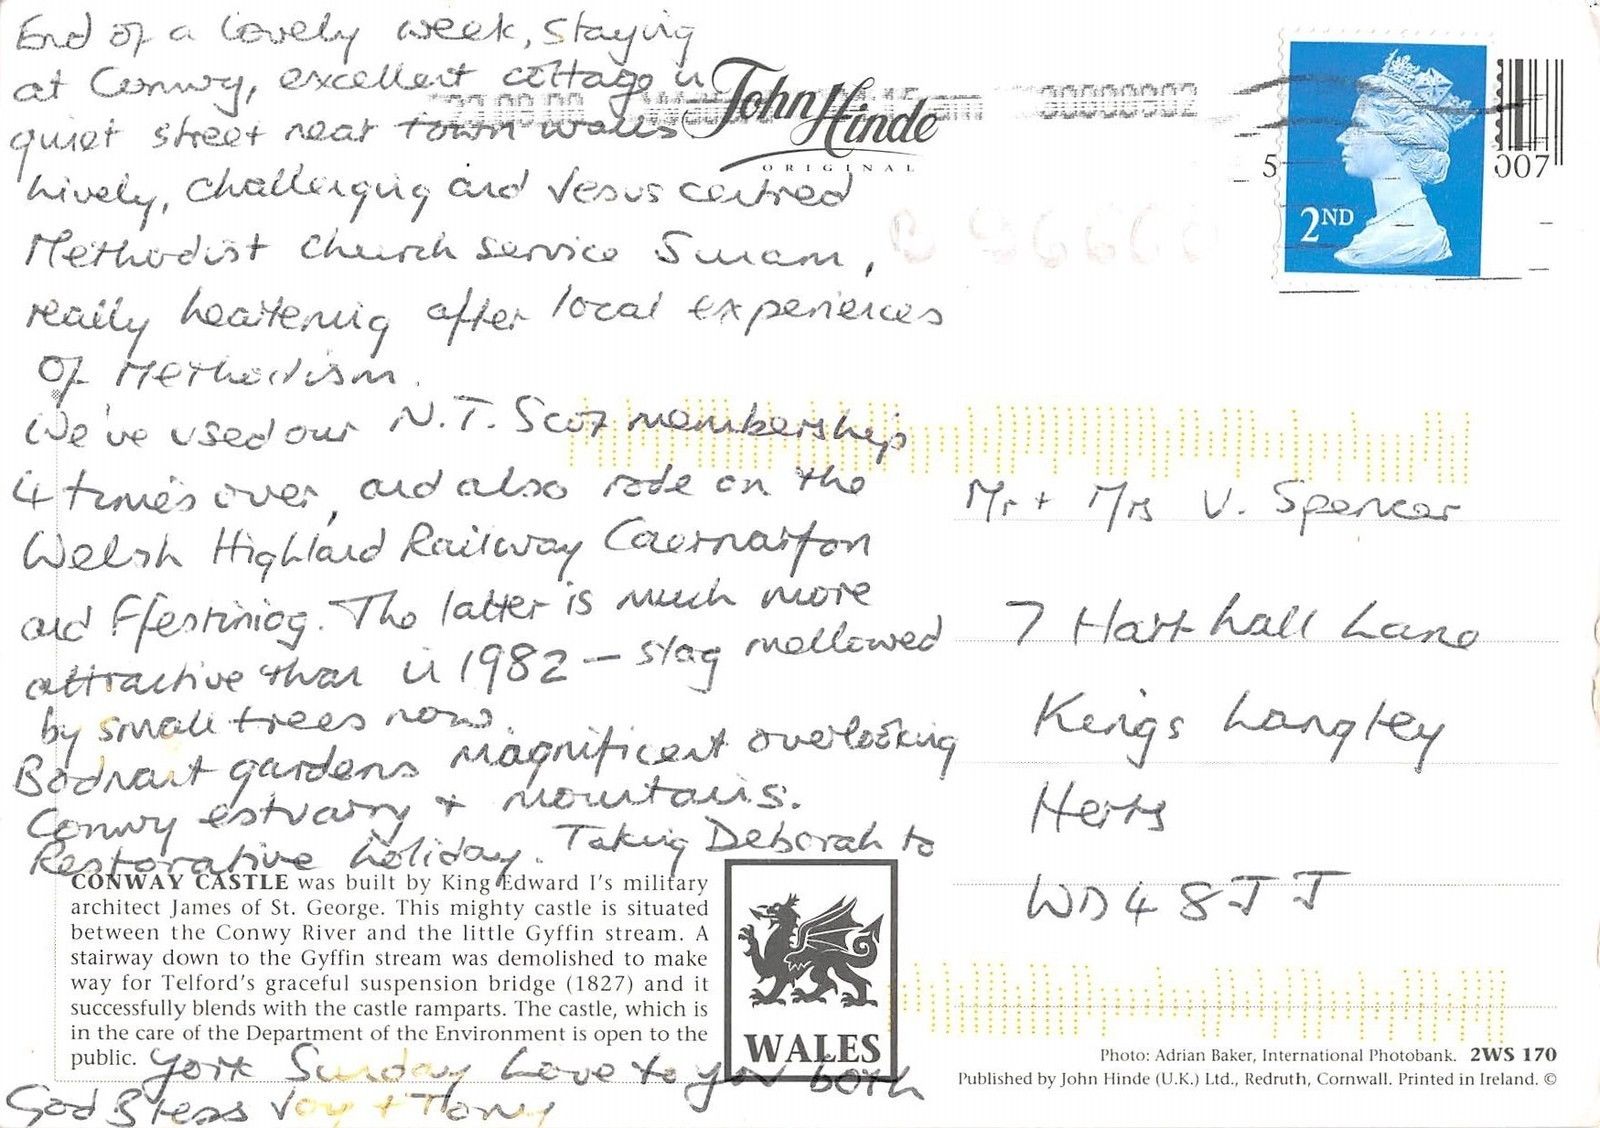 End of a lovely week, staying
at Conwy, excellent cottage in
quiet street near town walls
Lively, challenging and Jesus centred
Methodist Church service Sunam,
really heartening after local experiences
of Methodism.
We've used our N.T. Scot membership
4 times over, and also rode on the
Welsh Highland Railway Caernarfon
and Ffestiniog. The latter is much more
attractive than in 1982 – slag mellowed
by small trees now.
Bodnant gardens magnificent overlooking
Conwy estuary + mountains.
Restorative holiday. Taking Deborah to
York Sunday Love to you both
God Bless Joy + Tony
John Hinde
ORIGINAL
00000902
5
007
2ND
Mr + Mrs V. Spencer
7 Hart hall Lane
Kings Langley
Herts
WD4 8JJ
CONWAY CASTLE was built by King Edward I's military
architect James of St. George. This mighty castle is situated
between the Conwy River and the little Gyffin stream. A
stairway down to the Gyffin stream was demolished to make
way for Telford's graceful suspension bridge (1827) and it
successfully blends with the castle ramparts. The castle, which is
in the care of the Department of the Environment is open to the
public.
WALES
Photo: Adrian Baker, International Photobank. 2WS 170
Published by John Hinde (U.K.) Ltd., Redruth, Cornwall. Printed in Ireland. ©